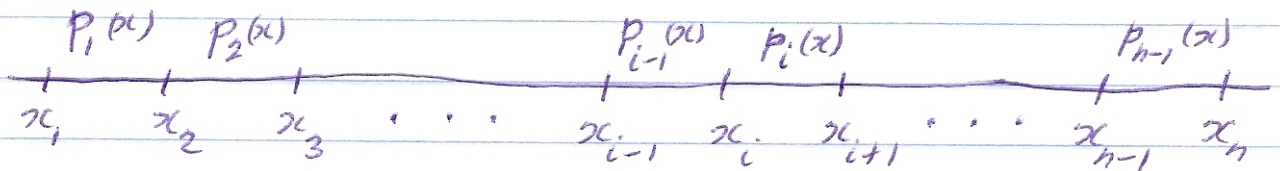 p₁(x) p₂(x) pᵢ₋₁(x) pᵢ(x) pₙ₋₁(x)
x₁ x₂ x₃ . . . xᵢ₋₁ xᵢ xᵢ₊₁ . . . xₙ₋₁ xₙ